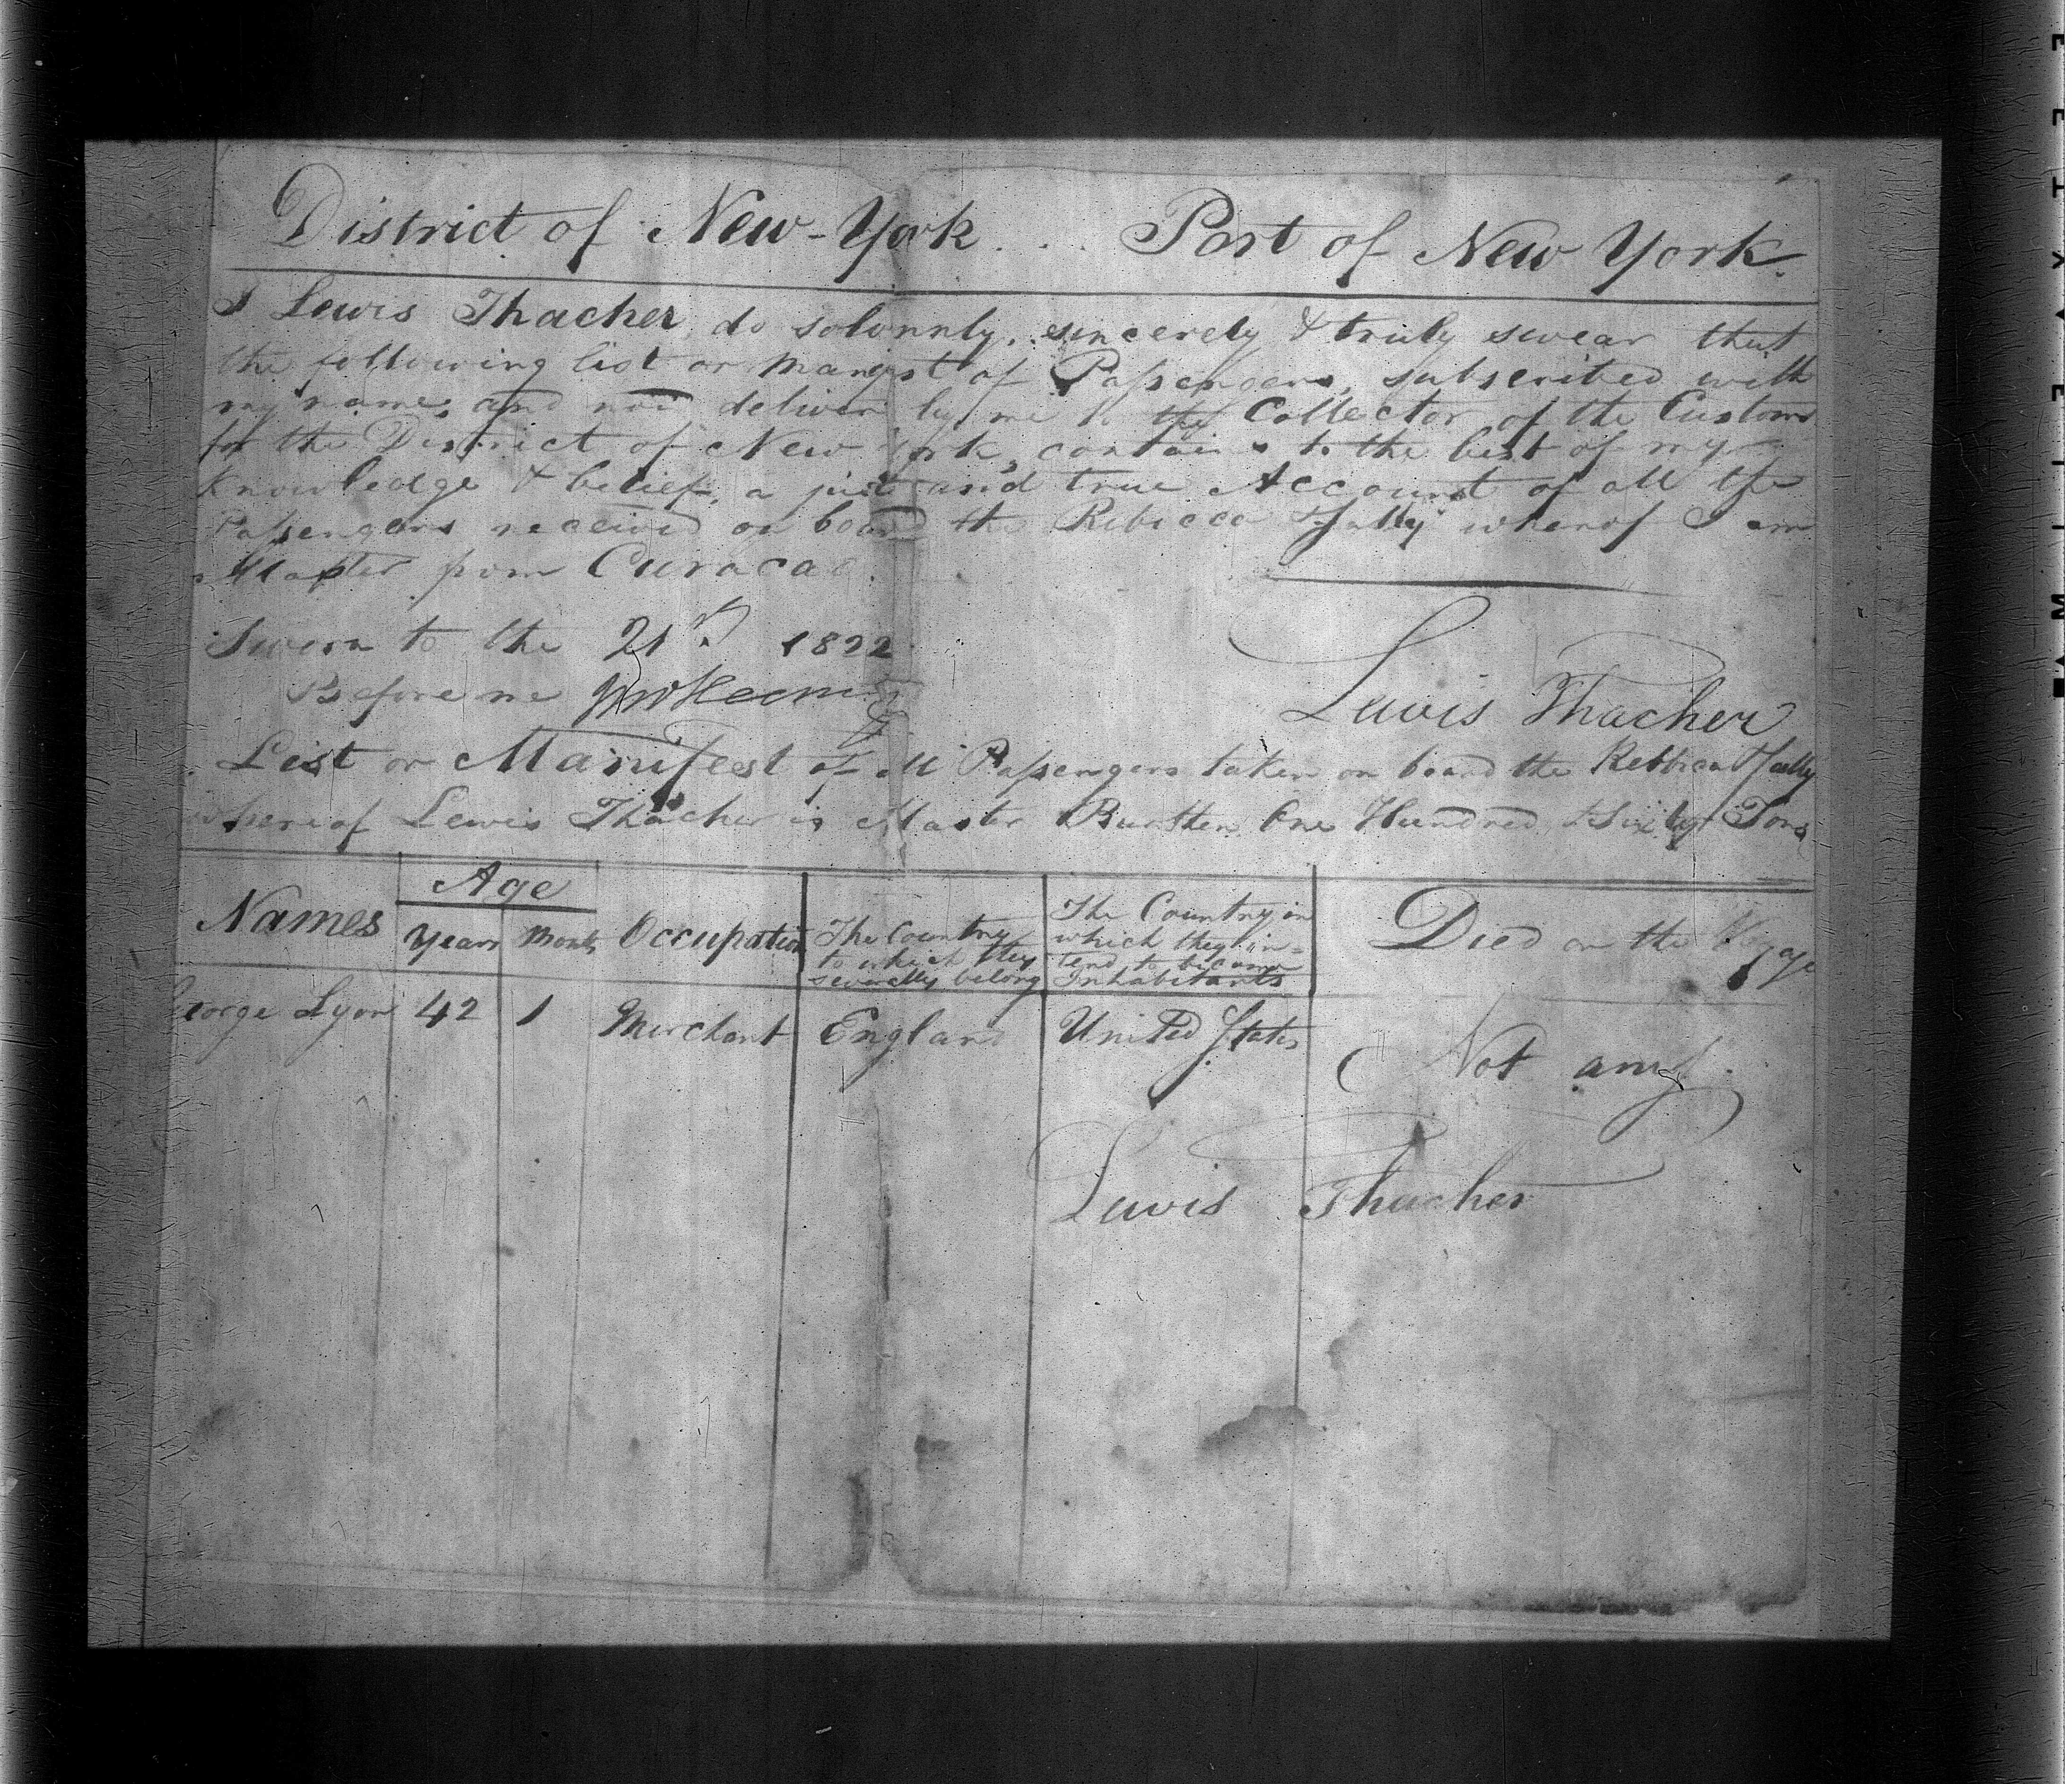 District of New-York . . . Port of New York.
I Lewis Thacher, do solomnly, sincerely & truly swear that
the following list or Manifest of Passengers, subscribed with
my name, and now deliver by me to the Collector of the Customs
for the District of New York, contains to the best of my
Knowledge & belief, a just and true Account of all the
Passengers received on board the Rebecca & Sally whereof I am
Master from Curacao.
Sworn to the 21st 1822
Before me
Lewis Thacher
List or Manifest of all Passengers taken on board the Rebbeca & Sally
whereof Lewis Thacher is Master Burthen One Hundred & Sixty Tons
Names Age Years Months Occupation The Country to which they severally belong The Country in which they in= tend to become Inhabitants Died on the Voyage
George Lyon 42 1 Merchant England United States Not any
Lewis Thacher